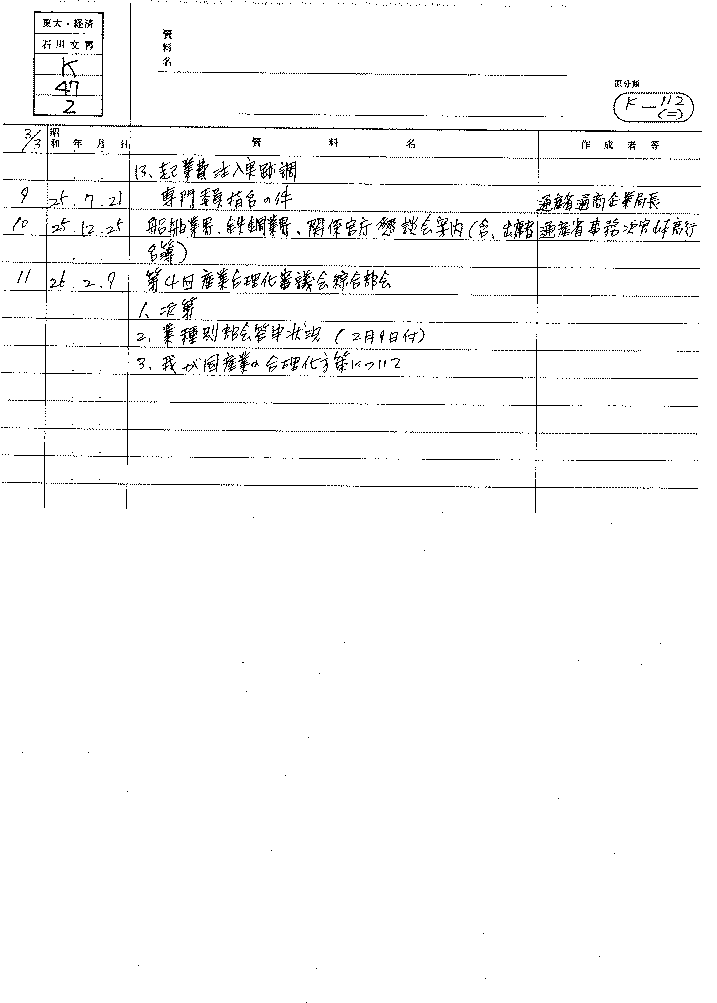 東大・経済
石川文書
K
47
2
資料名
原分類
K-112
(二)
3/3 昭和 年 月 日 資料名 作成者等
13. 起業費注入実跡調
9 25.7.21 専門委員指名の件 通産省通商企業局長
10 25.12.25 船舶業界、鉄鋼業界、関係官庁懇談会案内(含、出席者 通産省事務次官 山本高行
名簿)
11 26.2.9 第4回産業合理化審議会綜合部会
1. 次第
2. 業種別部会答申状況 (2月9日付)
3. 我が国産業の合理化方策について